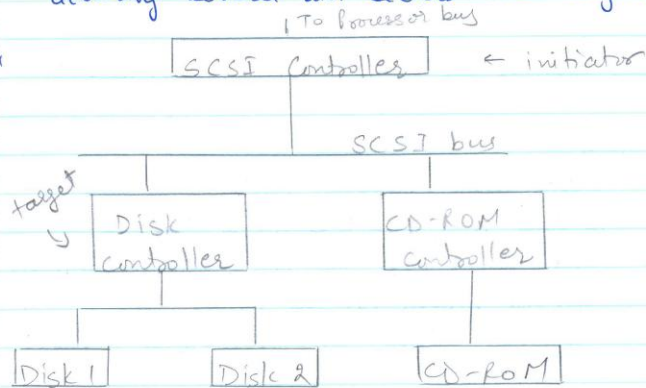 To Processor bus
SCSI Controller ← initiator
SCSI bus
target
Disk
controller
CD-ROM
controller
Disk 1
Disk 2
CD-ROM